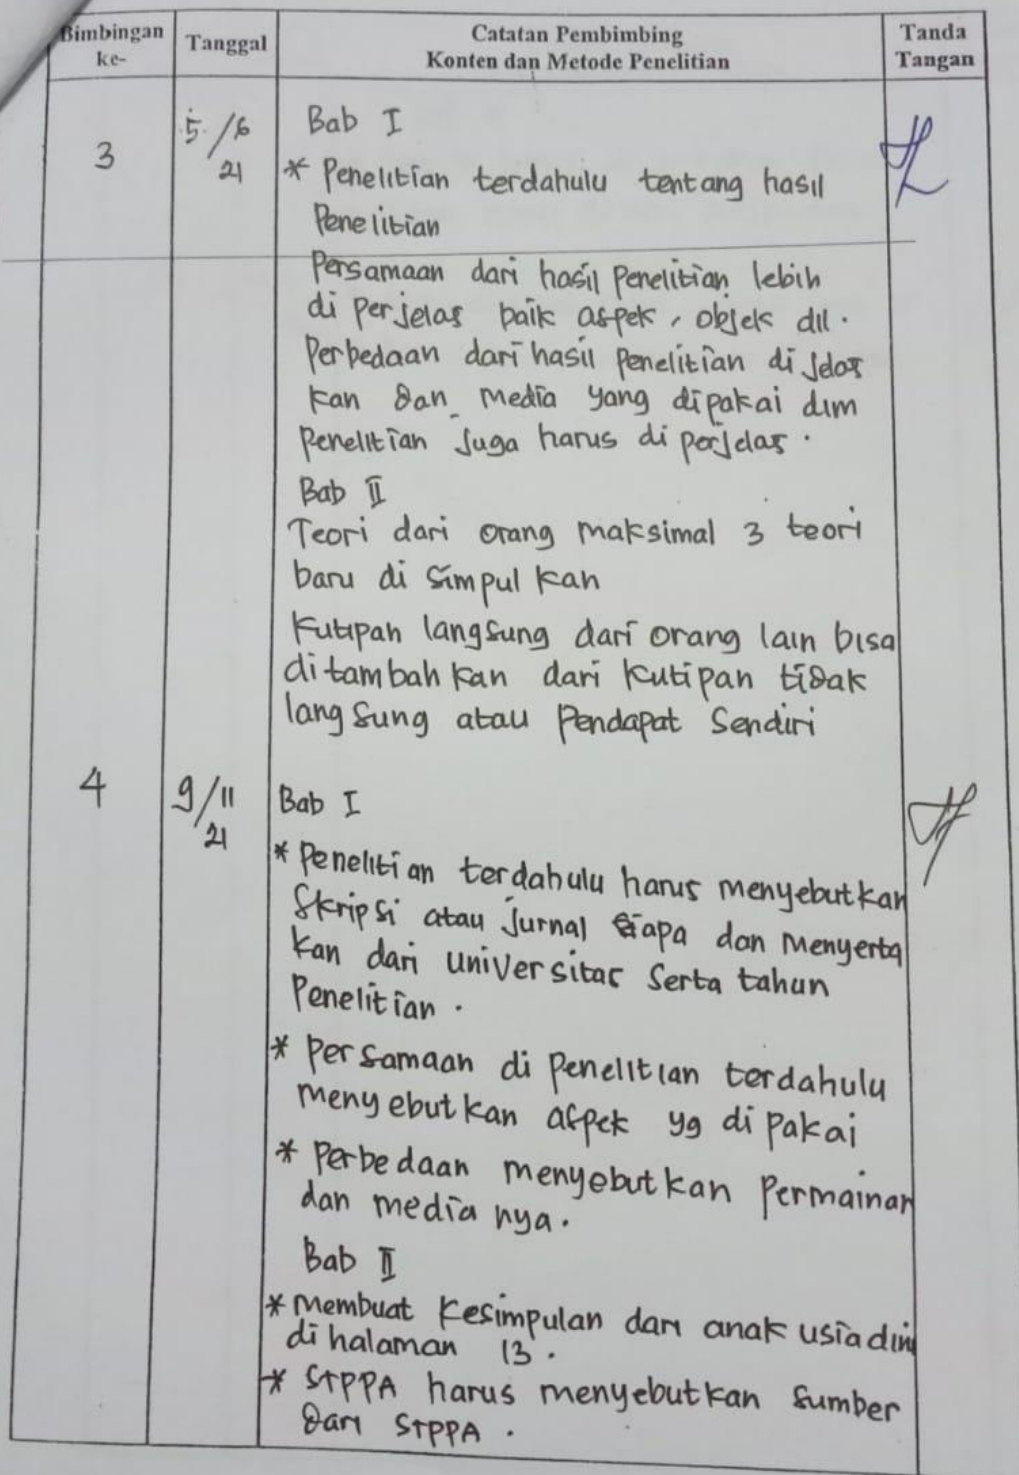 Bimbingan ke- Tanggal Catatan Pembimbing Konten dan Metode Penelitian Tanda Tangan
3
5/6 21
Bab I
* Penelitian terdahulu tentang hasil
Penelitian
Persamaan dari hasil Penelitian lebih
di perjelas baik aspek, objek dll.
Perbedaan dari hasil Penelitian di Jelas
kan dan media yang dipakai dlm
Penelitian Juga harus di perjelas.
Bab II
Teori dari orang maksimal 3 teori
baru di simpul kan
Kutipan langsung dari orang lain bisa
di tambah kan dari kutipan tidak
lang sung atau Pendapat Sendiri
4
9/11 21
Bab I
* Penelitian terdahulu harus menyebutkan
Skripsi atau Jurnal siapa dan Menyerta
kan dari universitas Serta tahun
Penelitian.
* Persamaan di Penelitian terdahulu
menyebutkan aspek yg di pakai
* Perbedaan menyebutkan Permainan
dan media nya.
Bab II
* Membuat Kesimpulan dari anak usia dini
di halaman 13.
* STPPA harus menyebutkan Sumber
dari STPPA.